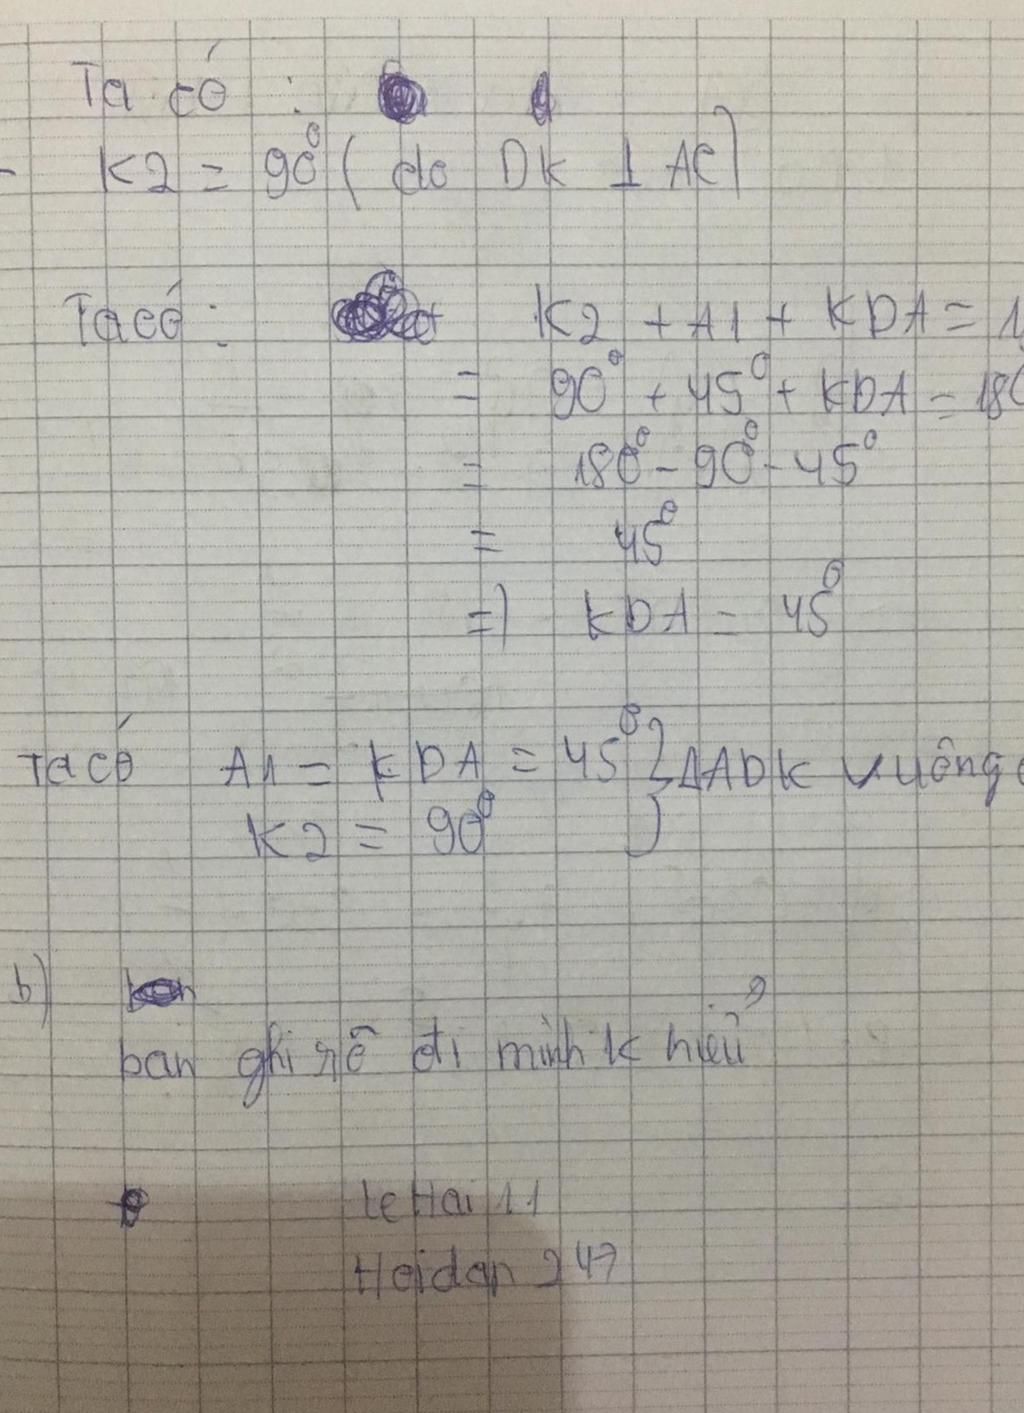 Ta có :
K2 = 90° ( do DK ⊥ AC)
Ta có : K2 + A1 + KDA = 1
= 90° + 45° + KDA = 180
= 180° - 90° - 45°
= 45°
=) KDA = 45°
Ta có A1 = KDA = 45° } ΔADK vuông
K2 = 90°
b)
bạn ghi rõ đi mình k hiểu
leHai 11
Heidan 247